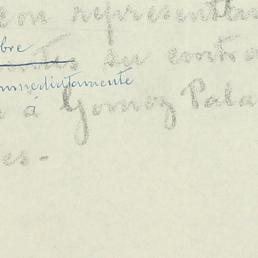 con represent
bre
su entra
inmediatamente
a Gomez Pala
es-